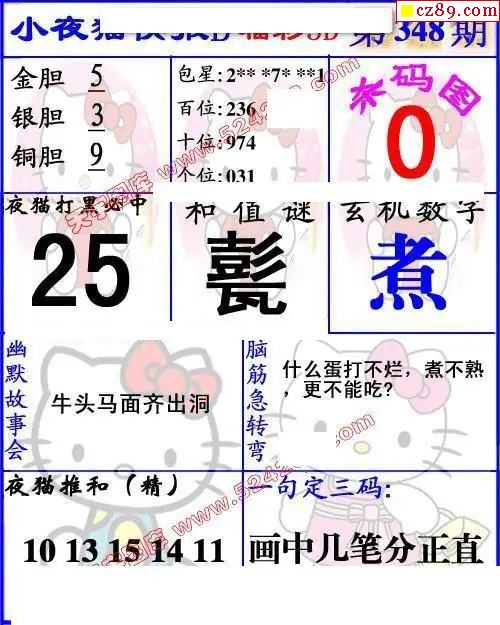 cz89.com
小夜猫快报 福彩3D 第348期
金胆 5
银胆 3
铜胆 9
包星:2** *7* **1
百位:236
十位:974
个位:031
杀码图
0
夜猫打黑必中
25
和值谜
甏
玄机数字
煮
幽默故事会
牛头马面齐出洞
脑筋急转弯
什么蛋打不烂，煮不熟
，更不能吃?
夜猫推和（精）
10 13 15 14 11
一句定三码:
画中几笔分正直